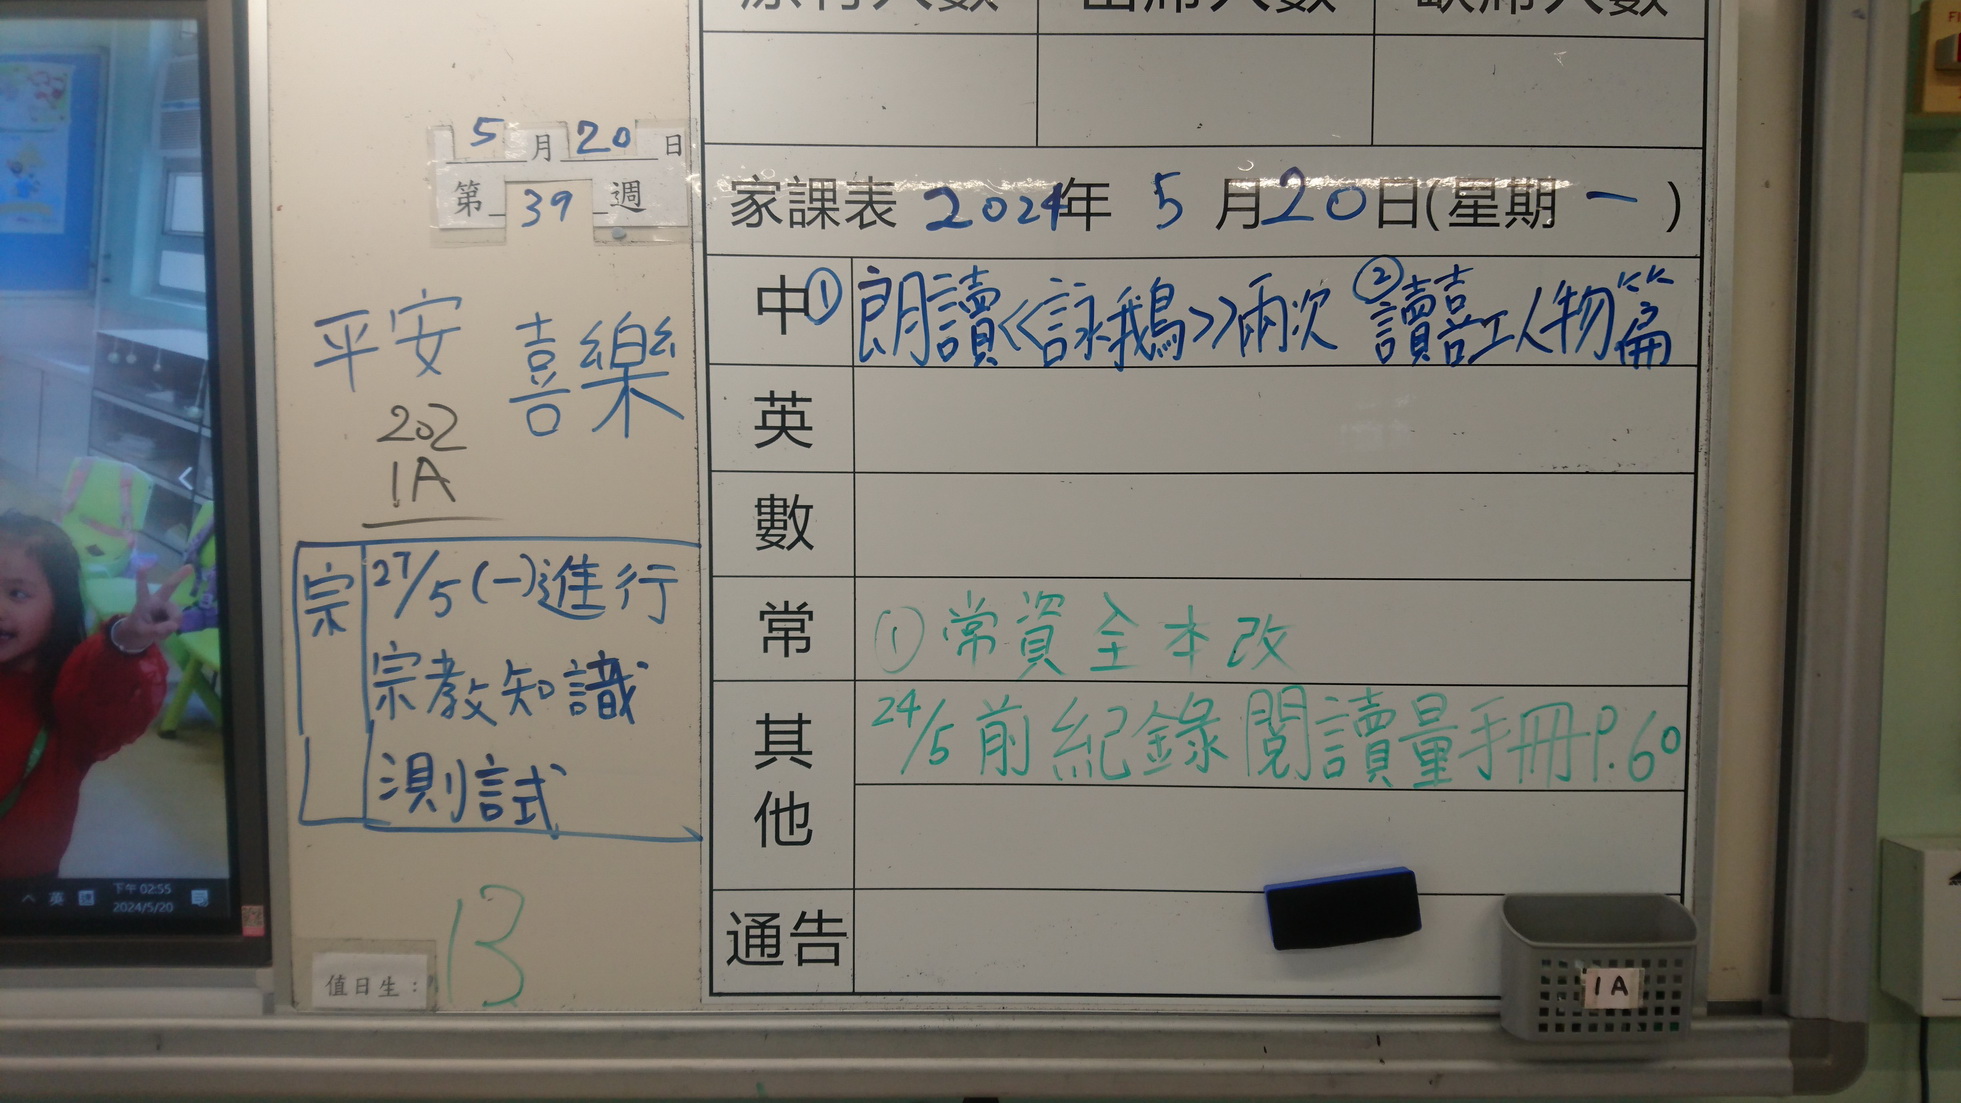 5月20日
第39週
平安 喜樂
202
1A
宗
27/5(一)進行
宗教知識
測試
值日生：13
家課表 2024年 5月20日(星期一)
中 ①朗讀<<詠鵝>>兩次 ②讀喜訊人物篇
英
數
常 ①常資全本改
其他 24/5前紀錄閱讀量手冊P.60
通告
1A
英
下午 02:55
2024/5/20